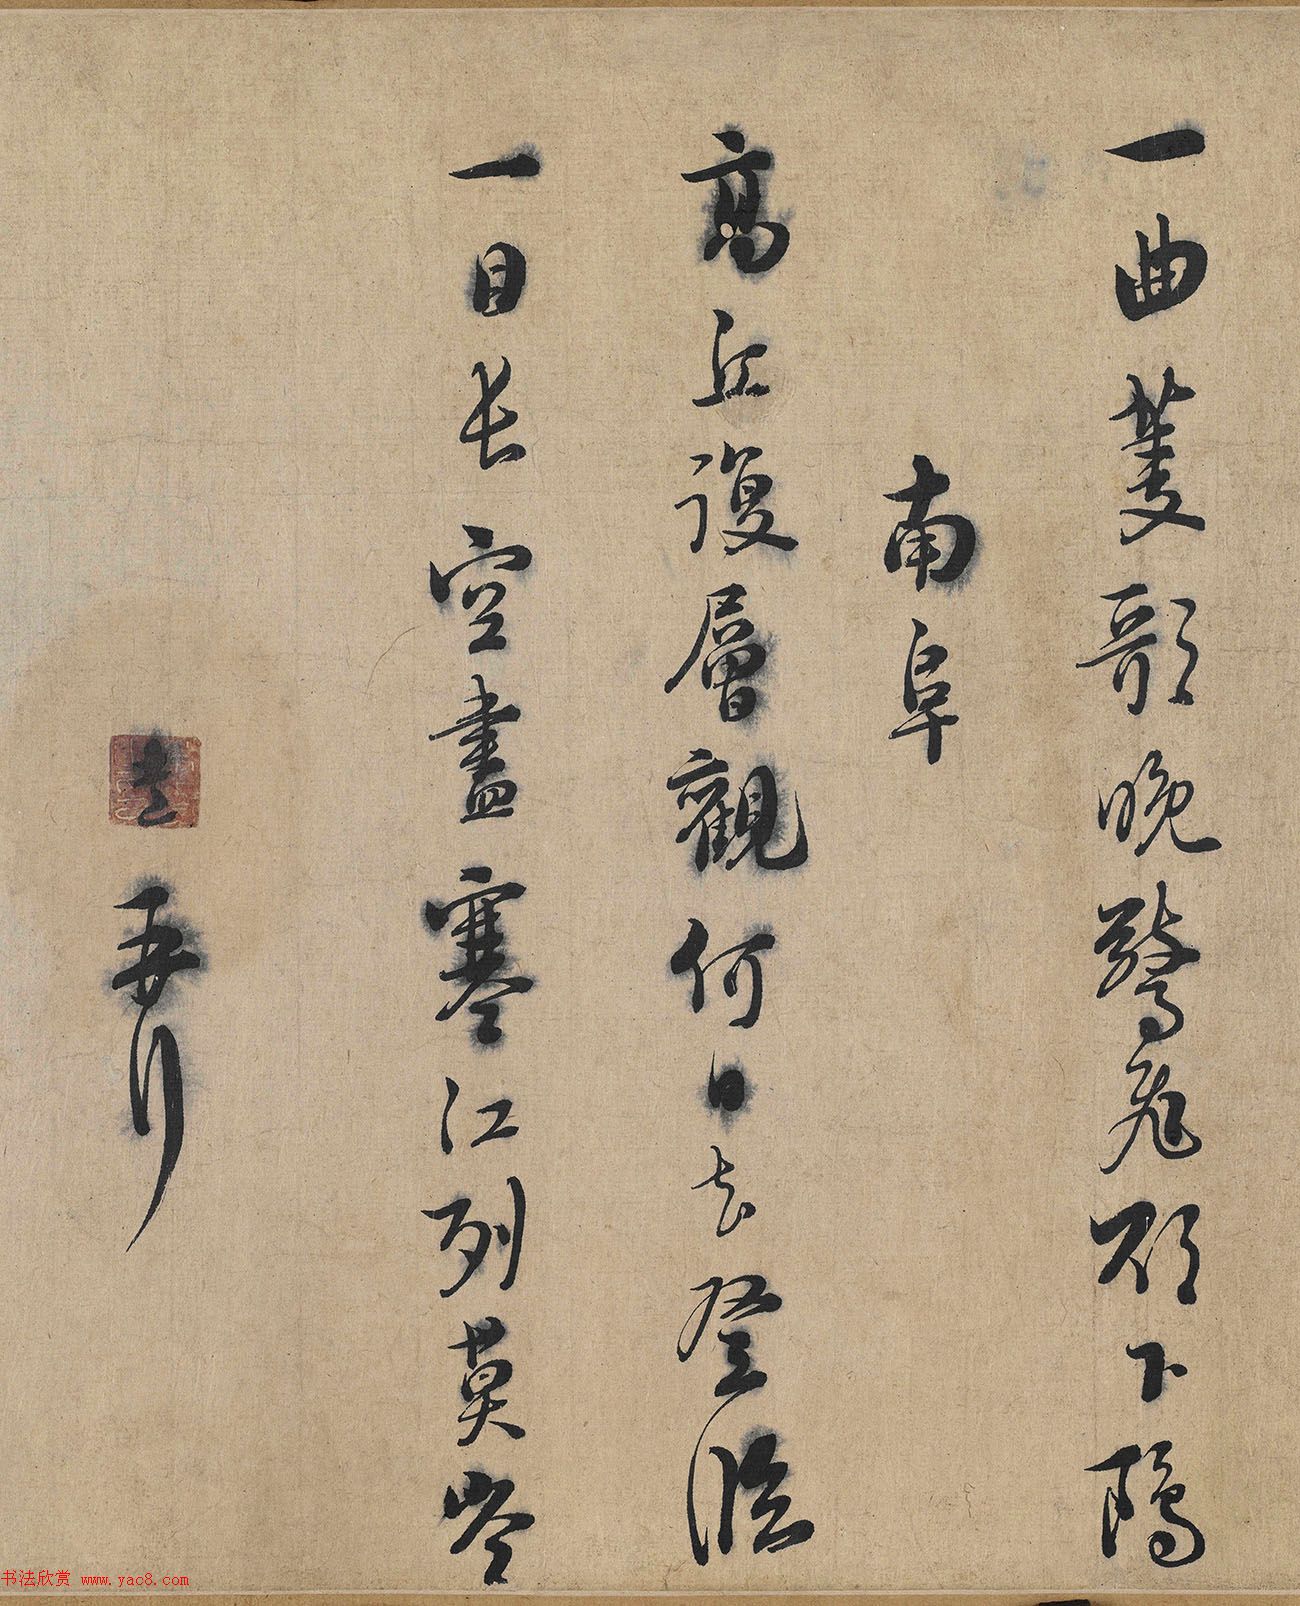 一曲菱歌晚驚飛欲下鷗
南阜
高丘復層觀何日去登臨
一目長空盡寒江列莫岑
熹再拜
书法欣赏 www.yac8.com